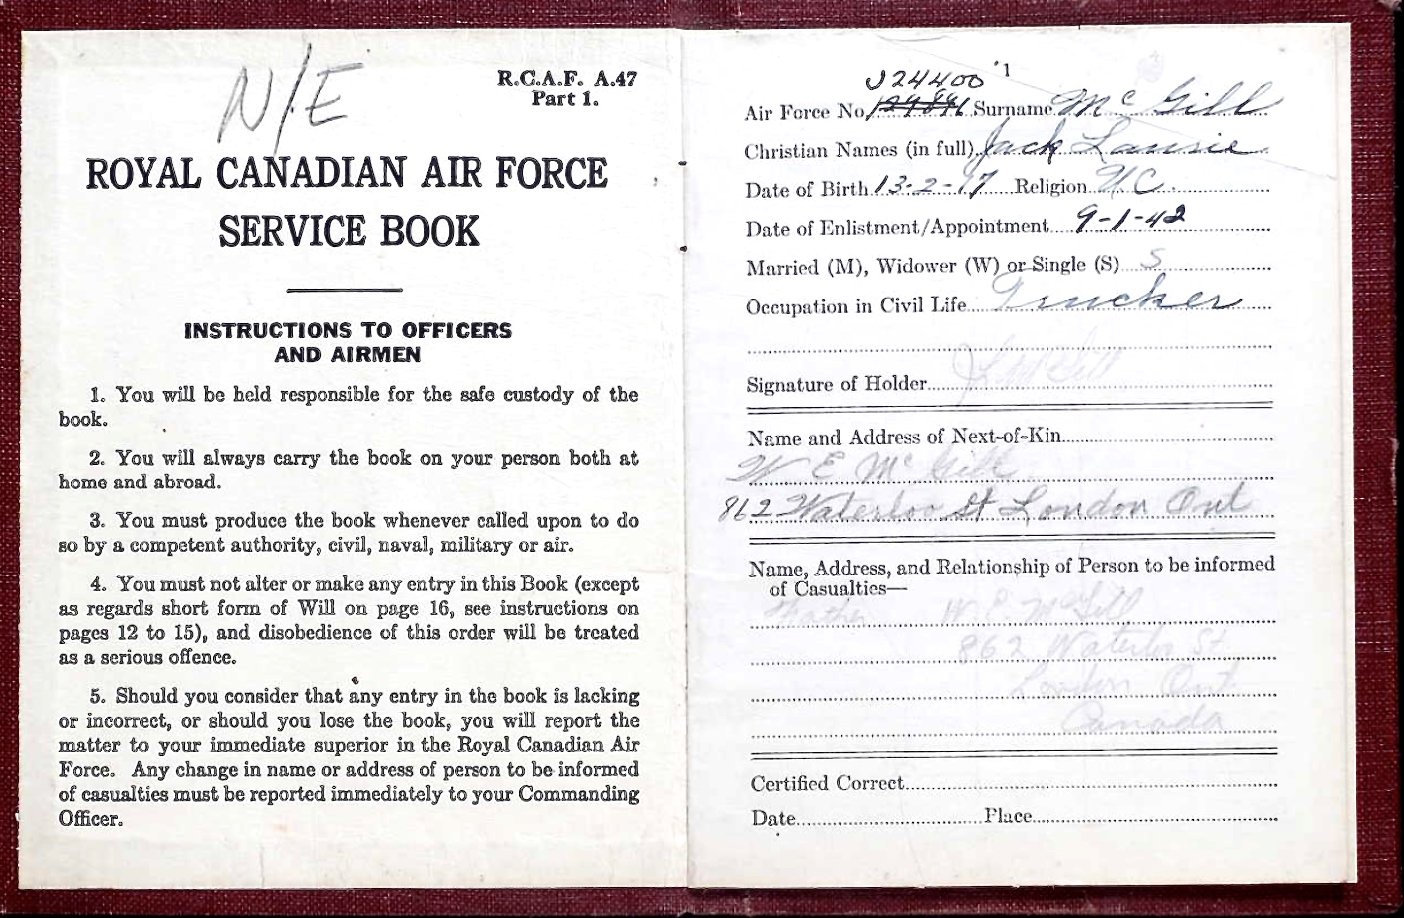 N/E
R.C.A.F. A.47
Part 1.
ROYAL CANADIAN AIR FORCE
SERVICE BOOK
INSTRUCTIONS TO OFFICERS
AND AIRMEN
1. You will be held responsible for the safe custody of the
book.
2. You will always carry the book on your person both at
home and abroad.
3. You must produce the book whenever called upon to do
so by a competent authority, civil, naval, military or air.
4. You must not alter or make any entry in this Book (except
as regards short form of Will on page 16, see instructions on
pages 12 to 15), and disobedience of this order will be treated
as a serious offence.
5. Should you consider that any entry in the book is lacking
or incorrect, or should you lose the book, you will report the
matter to your immediate superior in the Royal Canadian Air
Force. Any change in name or address of person to be informed
of casualties must be reported immediately to your Commanding
Officer.
1
J24400
Air Force No. Surname McGill
Christian Names (in full) Jack Lansie
Date of Birth 13-2-17 Religion U C.
Date of Enlistment/Appointment 9-1-42
Married (M), Widower (W) or Single (S) S
Occupation in Civil Life Trucker
Signature of Holder J L McGill
Name and Address of Next-of-Kin
W E McGill
862 Waterloo St London Ont
Name, Address, and Relationship of Person to be informed
of Casualties—
Father W E McGill
862 Waterloo St
London Ont
Canada
Certified Correct
Date Place